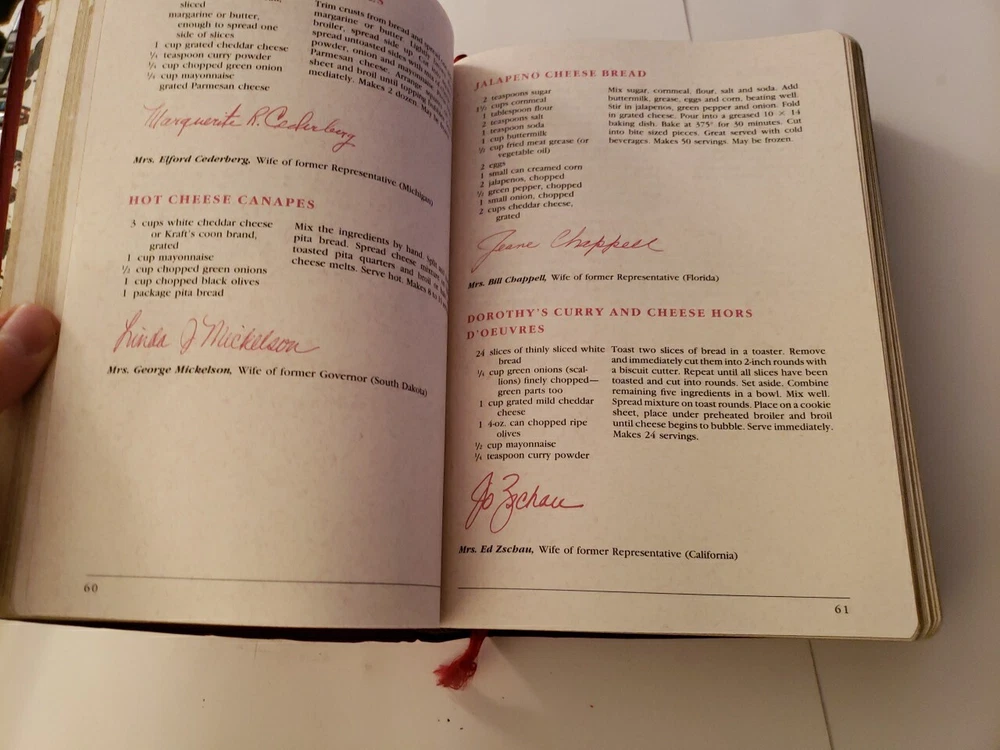 sliced
margarine or butter,
enough to spread one
side of slices
1 cup grated cheddar cheese
¼ teaspoon curry powder
¼ cup chopped green onion
¼ cup mayonnaise
grated Parmesan cheese
Trim crusts from bread and
margarine or butter. Lightly
broiler, spread side up.
spread untoasted sides with
powder, onion and mayonnaise
Parmesan cheese. Arrange
sheet and broil until topping
mediately. Makes 2 dozen. May be
Marguerite R. Cederberg
Mrs. Elford Cederberg, Wife of former Representative (Michigan)
HOT CHEESE CANAPES
3 cups white cheddar cheese
or Kraft's coon brand,
grated
1 cup mayonnaise
½ cup chopped green onions
1 cup chopped black olives
1 package pita bread
Mix the ingredients by hand. Split
pita bread. Spread cheese mixture
toasted pita quarters and broil
cheese melts. Serve hot. Makes
Linda J Mickelson
Mrs. George Mickelson, Wife of former Governor (South Dakota)
60
JALAPENO CHEESE BREAD
2 teaspoons sugar
1½ cups cornmeal
1 tablespoon flour
2 teaspoons salt
1 teaspoon soda
1 cup buttermilk
cup fried meat grease (or
vegetable oil)
2 eggs
1 small can creamed corn
2 jalapenos, chopped
½ green pepper, chopped
1 small onion, chopped
2 cups cheddar cheese,
grated
Mix sugar, cornmeal, flour, salt and soda. Add
buttermilk, grease, eggs and corn, beating well.
Stir in jalapenos, green pepper and onion. Fold
in grated cheese. Pour into a greased 10 × 14
baking dish. Bake at 375° for 30 minutes. Cut
into bite sized pieces. Great served with cold
beverages. Makes 50 servings. May be frozen.
Jeane Chappell
Mrs. Bill Chappell, Wife of former Representative (Florida)
DOROTHY'S CURRY AND CHEESE HORS
D'OEUVRES
24 slices of thinly sliced white
bread
¼ cup green onions (scal-
lions) finely chopped—
green parts too
1 cup grated mild cheddar
cheese
1 4-oz. can chopped ripe
olives
½ cup mayonnaise
¼ teaspoon curry powder
Toast two slices of bread in a toaster. Remove
and immediately cut them into 2-inch rounds with
a biscuit cutter. Repeat until all slices have been
toasted and cut into rounds. Set aside. Combine
remaining five ingredients in a bowl. Mix well.
Spread mixture on toast rounds. Place on a cookie
sheet, place under preheated broiler and broil
until cheese begins to bubble. Serve immediately.
Makes 24 servings.
Jo Zschau
Mrs. Ed Zschau, Wife of former Representative (California)
61